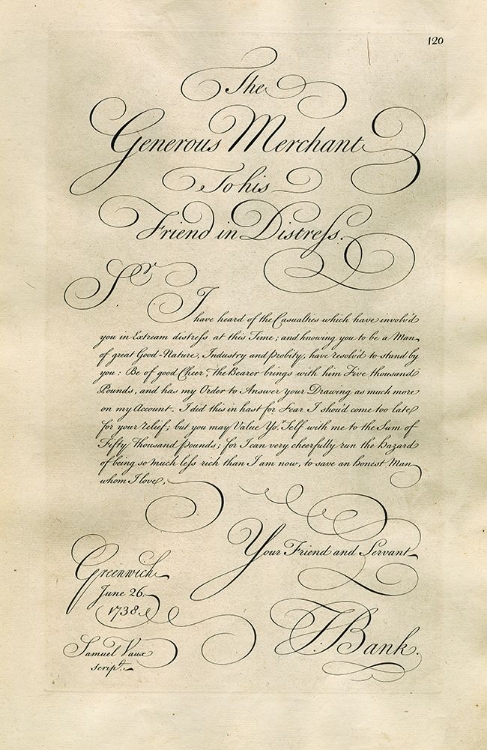 120
The
Generous Merchant
To his
Friend in Distress.
Sr.
I have heard of the Casualties which have involv'd
you in Extream distress at this Time; and knowing you to be a Man
of great Good-Nature, Industry and Probity, have resolv'd to stand by
you: Be of good Cheer, the Bearer brings with him Five thousand
Pounds, and has my Order to Answer your Drawing as much more
on my Account. I did this in hast for Fear I shou'd come too late
for your relief; but you may Value Yo. Self with me to the Sum of
Fifty Thousand Pounds; for I can very cheerfully run the Hazard
of being so much less rich than I am now, to save an Honest Man
whom I love;
Your Friend and Servant
Greenwich
June 26.
1738.
F. Bank.
Samuel Vaux
script.